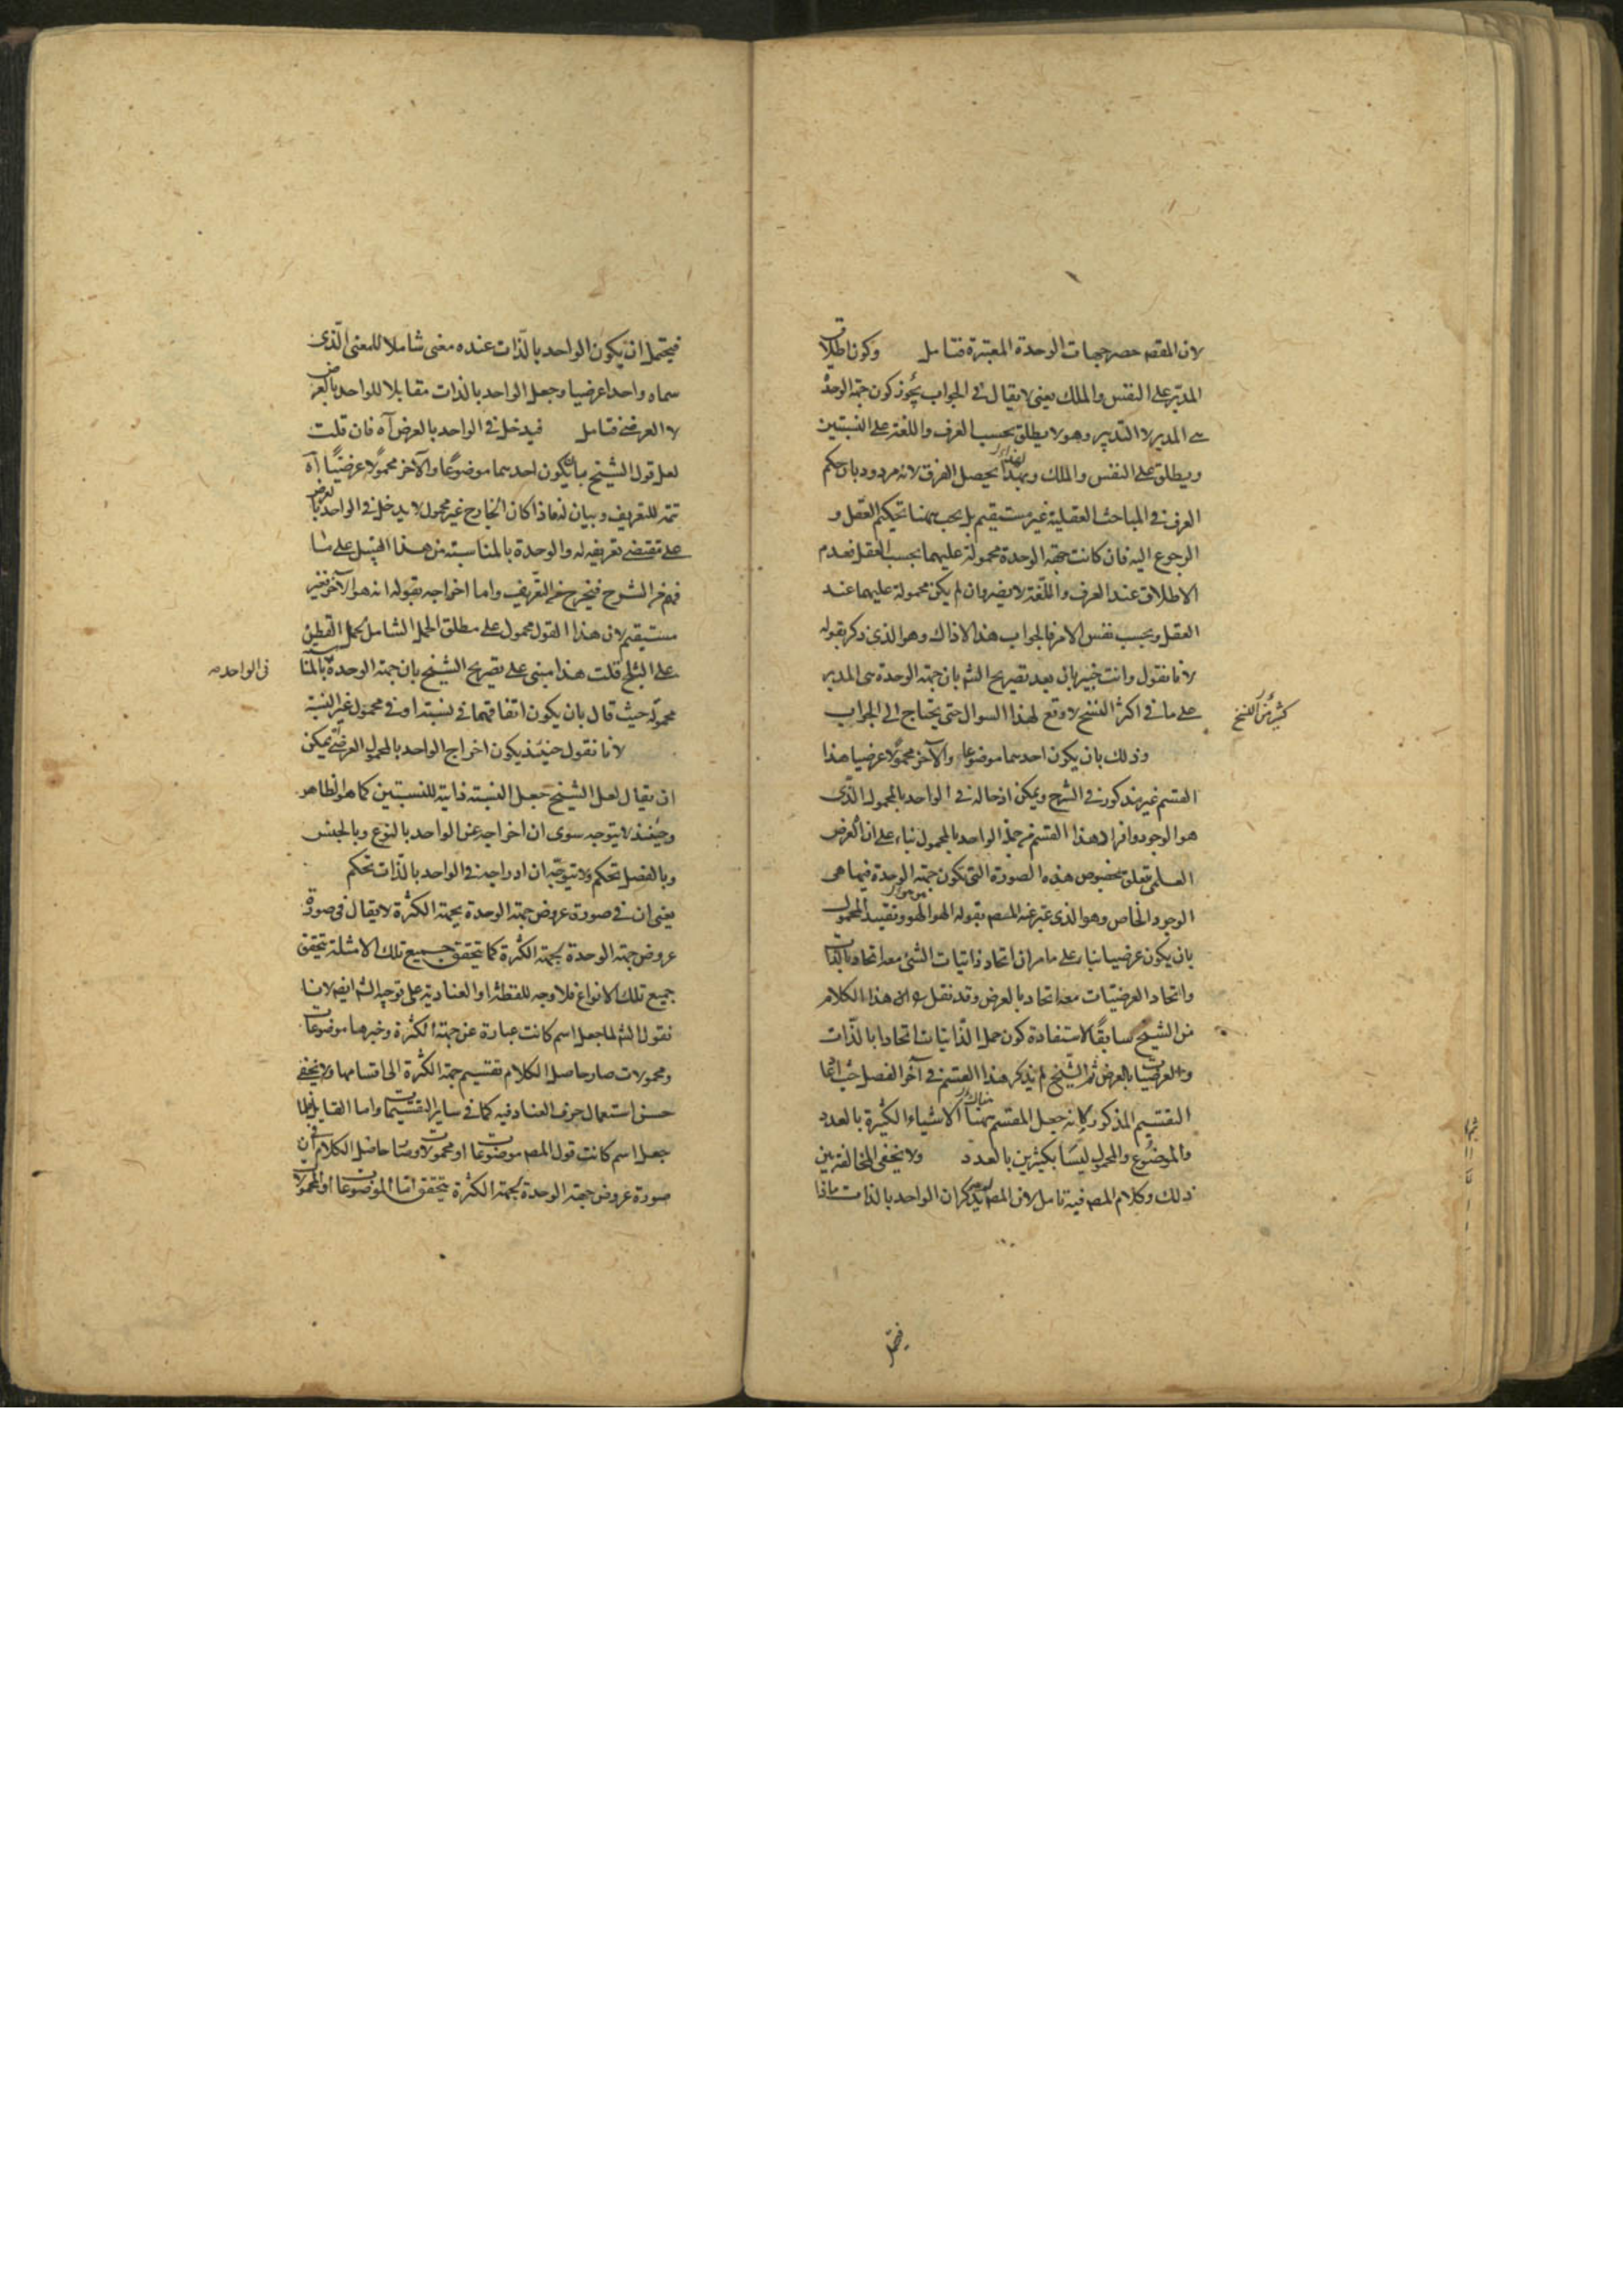 لان المقصه حصر جهات الوحدة المعتبرة فتامل وكون اطلاق
المدبر على النفس والملك يعنى لا يقال فى الجواب يجوز كون جهة الوحدة
هى المدبر لا التدبير وهو لا يطلق بحسب العرف واللغة على النسبتين
ويطلق على النفس والملك وبهذا يحصل الفرق لانه مردود بان حكم
العرف فى المباحث العقلية غير مستقيم بل يجب ههنا تحكيم العقل و
الرجوع اليه فان كانت جهة الوحدة محمولة عليهما بحسب العقل فعدم
الاطلاق عند العرف واللغة لا يضر وان لم يكن محمولة عليهما عند
العقل وبحسب نفس الامر فالجواب هذا لا ذاك وهو الذى ذكر بقوله
لانا نقول وانت خبير بان بعد تصريح الشه بان جهة الوحدة هى المدبر
على ما فى اكثر النسخ لا وقع لهذا السوال حتى يحتاج الى الجواب
كثير من النسخ
وذلك بان يكون احدهما موضوعا والآخر محمولا عرضيا هذا
القسم غير مذكور فى الشرح ويمكن ادخاله فى الواحد بالمحمول الذى
هو الوجود وافراد هذا القسم من جملة الواحد بالمحمول بناء على ان الغرض
العلمى تعلق بخصوص هذه الصورة التى تكون جهة الوحدة فيها هى
الوجود الخاص وهو الذى عبر عنه المصه بقوله الهو هو وتقييد المحمول
بان يكون عرضيا بناء على ما مر ان اتحاد ذاتيات الشئ معه اتحاد بالذات
واتحاد العرضيات معه اتحاد بالعرض وقد نقل هذا الكلام
من الشيخ سابقا لاستفادة كون حمل الذاتيات اتحادا بالذات
والعرضيات بالعرض ثم الشيخ لم يذكر هذا القسم فى آخر الفصل حيث
التقسيم المذكور كانه جعل المقسم ههنا الاشياء الكثيرة بالعدد
والموضوع والمحمول ليسا بكثيرين بالعدد ولا يخفى المخالفة بين
ذلك وكلام المصه فيه تامل لان المصه لم يذكر ان الواحد بالذات ماذا
فيحتمل ان يكون الواحد بالذات عنده معنى شاملا للمعنى الذى
سماه واحدا عرضيا وجعل الواحد بالذات مقابلا للواحد بالعرض
لا العرضى فتامل فيدخل فى الواحد بالعرض آه فان قلت
لعل قول الشيخ بان يكون احدهما موضوعا والآخر محمولا عرضيا آه
تتمه للتعريف وبيان له فاذا كان الخارج غير محمول لا يدخل فى الواحد بالعرض
على مقتضى تعريفه له والوحدة بالمناسبة من هذا القبيل على ما
فهم من الشرح فيخرج عن التعريف واما اخراجه بقوله انه هو الآخر فغير
مستقيم لان هذا القول محمول على مطلق الحمل الشامل لحمل القطن
على الثلج قلت هذا مبنى على تصريح الشيخ بان جهة الوحدة بالمناسبة
فى الواحد صه
محمولة حيث قال بان يكون اتفاقهما فى نسبة او فى محمول غير النسبة
لانا نقول حينئذ يكون اخراج الواحد بالمحمول العرضى يمكن
ان يقال لعل الشيخ جعل النسبة ذاتية للنسبتين كما هو الظاهر
وحينئذ لا يتوجه سوى ان اخراجه عن الواحد بالنوع وبالجنس
وبالفصل تحكم ولا يتوجه ان ادراجه فى الواحد بالذات تحكم
يعنى ان فى صورة عروض جهة الوحدة بجهة الكثرة لا يقال فى صورة
عروض جهة الوحدة بجهة الكثرة كما يتحقق جميع تلك الامثلة يتحقق
جميع تلك الانواع فلا وجه للفظة او العنادية على توجيه الشه ايضه لانا
نقول الشه لما جعل اسم كانت عبارة عن جهة الكثرة وخبرها موضوعات
ومحمولات صار حاصل الكلام تقسيم جهة الكثرة الى اقسامها ولا يخفى
حسن استعمال حرف العناد فيه كما فى ساير التقسيمات واما القايل فلما
جعل اسم كانت قول المصه موضوعات او محمولات وصار حاصل الكلام ان فى
صورة عروض جهة الوحدة بجهة الكثرة يتحقق اما الموضوعات او المحمولات